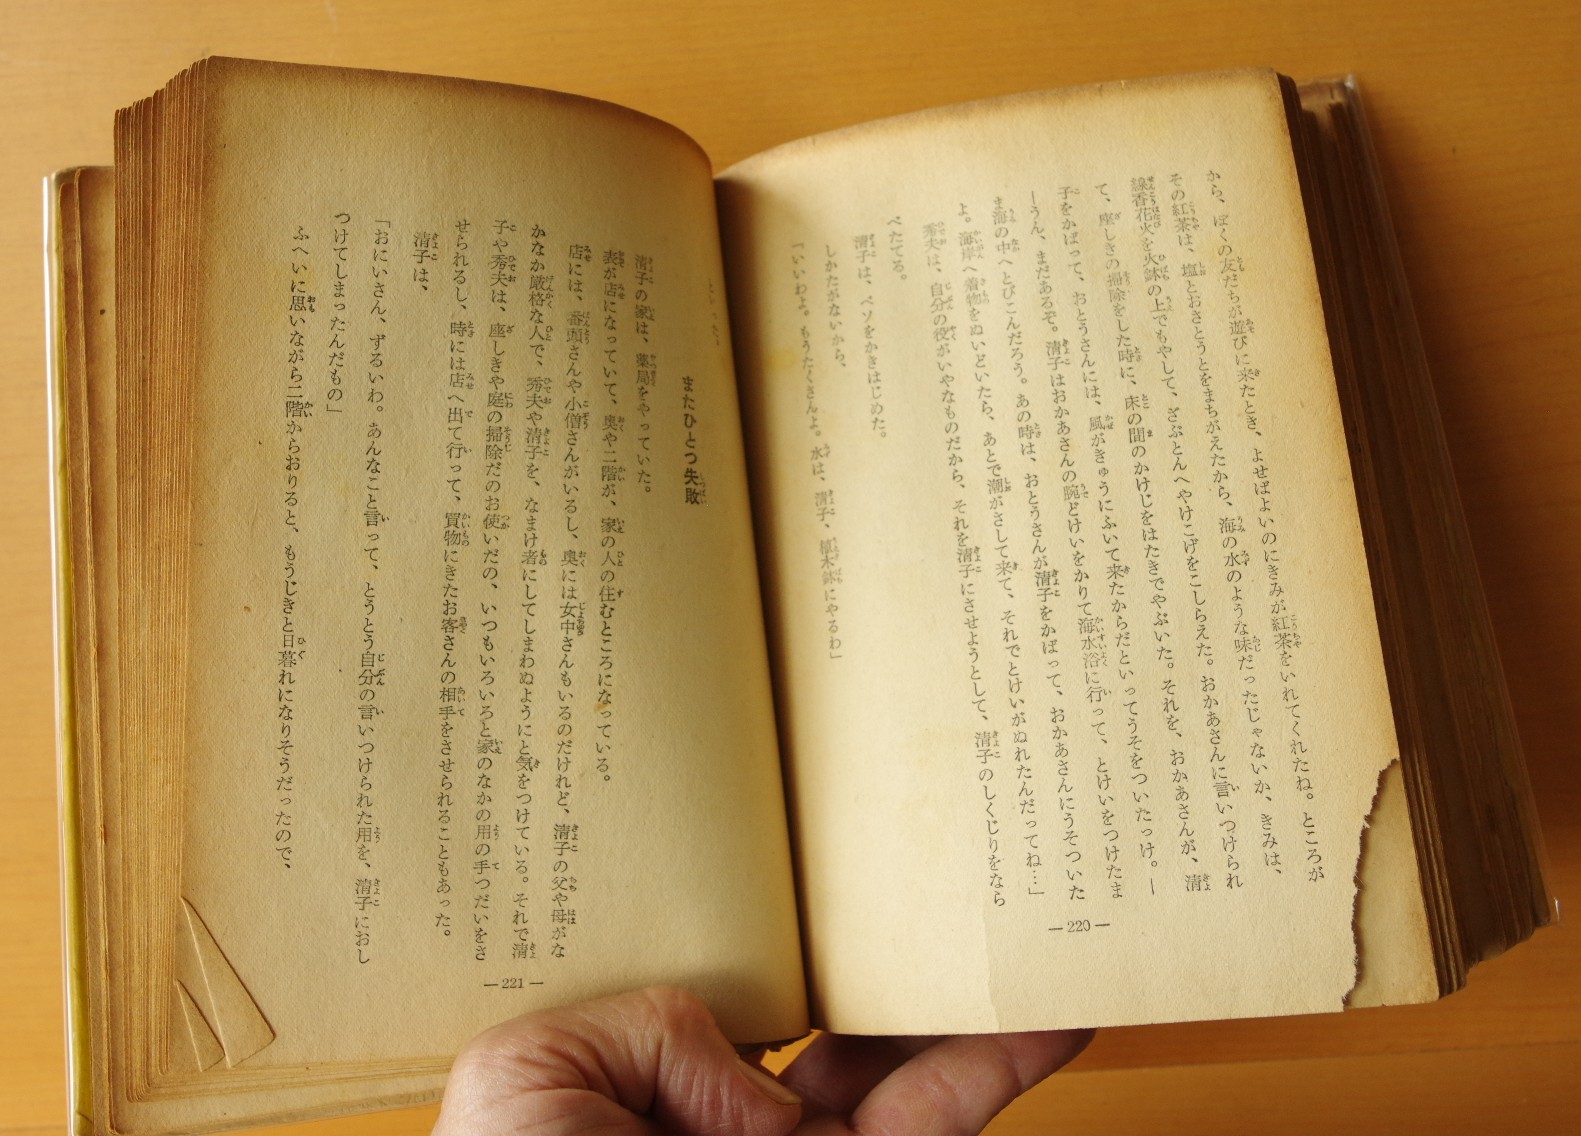 から、ぼくの友だちが遊びに来たとき、よせばよいのにきみが紅茶をいれてくれたね。ところが
その紅茶は、塩とおさとうとをまちがえたから、海の水のような味だったじゃないか、きみは、
線香花火を火鉢の上でもやして、ざぶとんへやけこげをこしらえた。おかあさんに言いつけられ
て、座しきの掃除をした時に、床の間のかけじをはたきでやぶいた。それを、おかあさんが、清
子をかばって、おとうさんには、風がきゅうにふいて来たからだといってうそをついたっけ。―
―うん、まだあるぞ。清子はおかあさんの腕どけいをかりて海水浴に行って、とけいをつけたま
ま海の中へとびこんだろう。あの時は、おとうさんが清子をかばって、おかあさんにうそついた
よ。海岸へ着物をぬいどいたら、あとで潮がさして来て、それでとけいがぬれたんだってね…」
秀夫は、自分の役がいやなものだから、それを清子にさせようとして、清子のしくじりをなら
べたてる。
清子は、ベソをかきはじめた。
しかたがないから、
「いいわよ。もうたくさんよ。水は、清子、植木鉢にやるわ」
― 220 ―
またひとつ失敗
清子の家は、薬局をやっていた。
表が店になっていて、奥や二階が、家の人の住むところになっている。
店には、番頭さんや小僧さんがいるし、奥には女中さんもいるのだけれど、清子の父や母がな
かなか厳格な人で、秀夫や清子を、なまけ者にしてしまわぬようにと気をつけている。それで清
子や秀夫は、座しきや庭の掃除だのお使いだの、いつもいろいろと家のなかの用の手つだいをさ
せられるし、時には店へ出て行って、買物にきたお客さんの相手をさせられることもあった。
清子は、
「おにいさん、ずるいわ。あんなこと言って、とうとう自分の言いつけられた用を、清子におし
つけてしまったんだもの」
ふへいに思いながら二階からおりると、もうじきと日暮れになりそうだったので、
― 221 ―